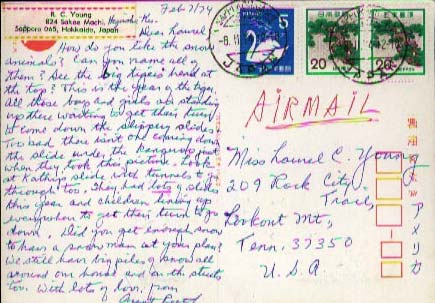 R. C. Young
Sapporo 065, Hokkaido, Japan
Feb 7/74
Dear Laurel,
How do you like the snow
animals? Can you name all of
them? See the big tiger's head at
the top? This is the year of the tiger.
All these boys and girls are standing
up there waiting to get their turn
to come down the slippery slides.
Too bad there isn't one coming down
the slide under the kangaroo just
when they took this picture. Look
at Kathy's slide with tunnels to go
through too. They had lots of slides
this year and children lining up
everywhere to get their turn to go
down. Did you get enough snow
to have a snow man at your place?
We still have big piles of snow all
around our house and on the streets
too. With lots of love, from
日本郵便
5
NIPPON
日本郵便
20
日本郵便
20
JAPAN
AIRMAIL
Miss Laurel C. Young
209 Rock City
Trail,
Lookout Mt,
Tenn. 37350
U.S.A
アメリカ